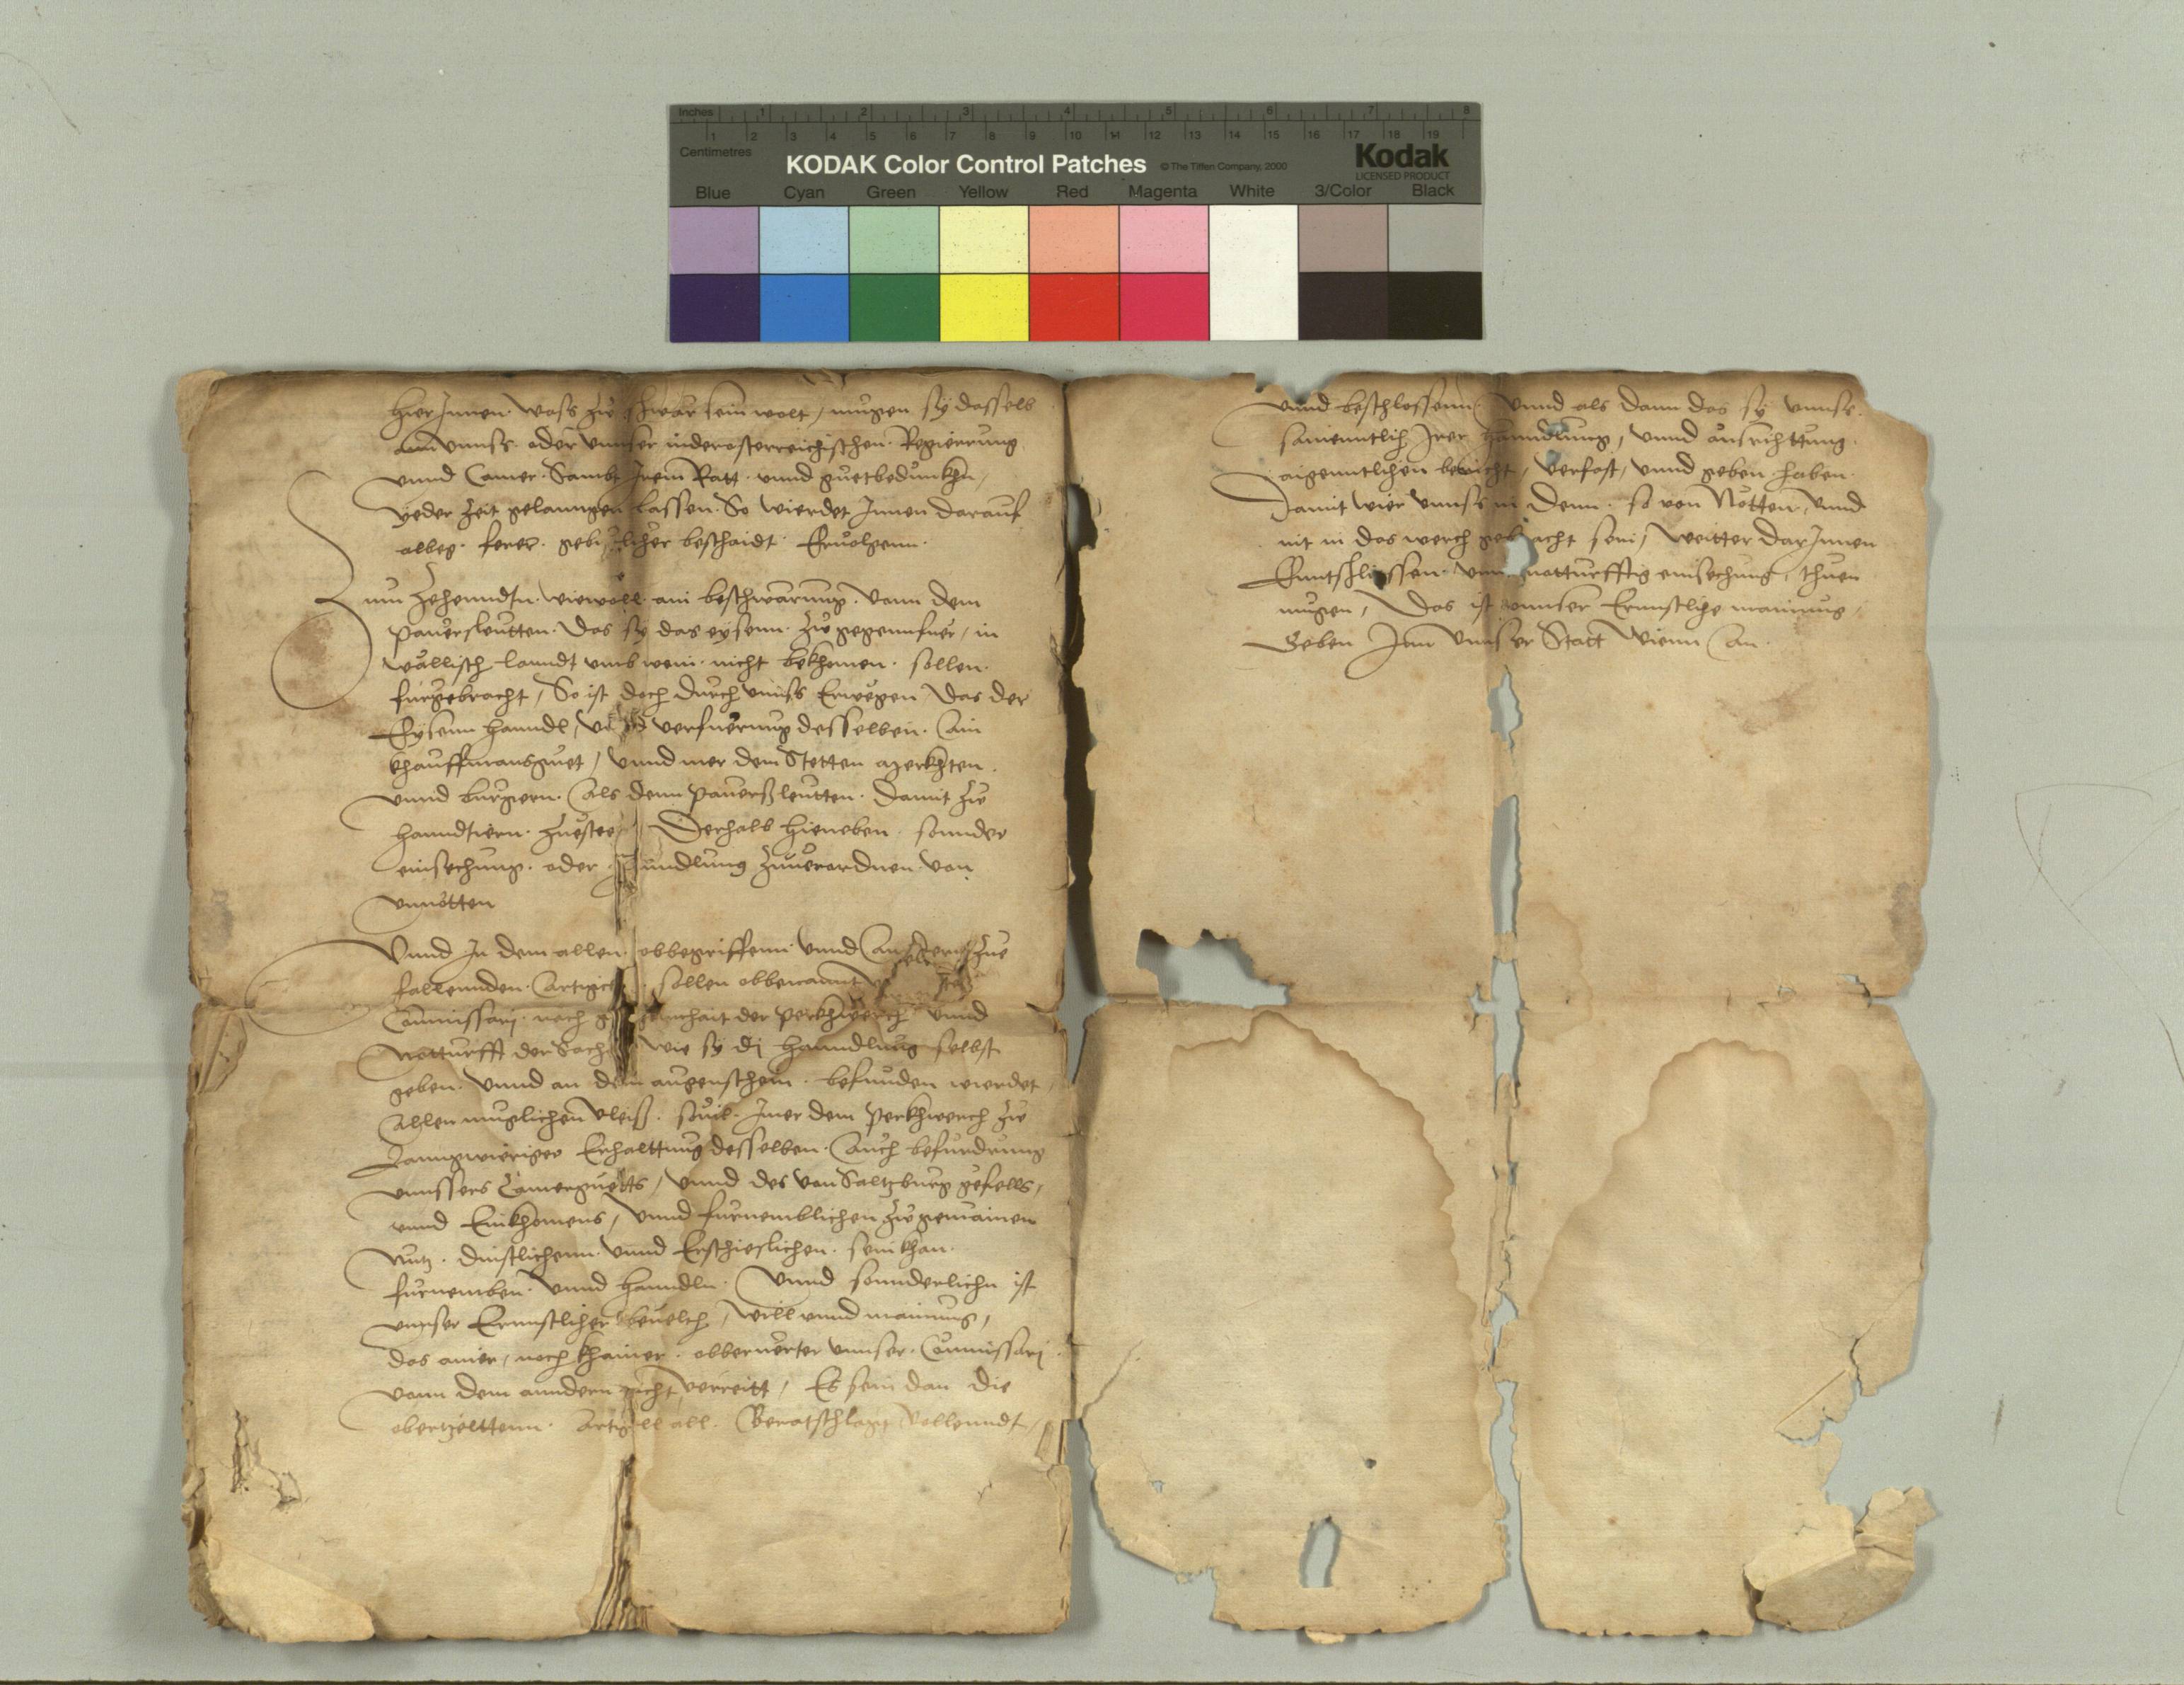 Inches 1 2 3 4 5 6 7 8
1 2 3 4 5 6 7 8 9 10 11 12 13 14 15 16 17 18 19
Centimetres
KODAK Color Control Patches © The Tiffen Company, 2000 Kodak
LICENSED PRODUCT
Blue Cyan Green Yellow Red Magenta White 3/Color Black
hierJnnen wass zu schwär sein wolt, mugen sy dasselb
an vnnss oder vnnser niderosterreichischen Regierrung
vnnd Camer Sambt Jrem Ratt vnnd guetbedunckhn,
yeder Zeit gelanngen lassen. So wierdet Jnnen darauf
alleg ferer beschaidt Ervolgenn
Zum Zehenndtn wiewoll ain beschwärung vonn dem
Paursleutten Das sy das eysenn Zu gegennfuer, in
wällisch lanndt vmb wein nicht bekhomen sollen
furgebracht, So ist doch durch vnnss Erwegen, das der
Eysenn hanndl, verfuerung desselben Ain
khauffmansguet, vnnd mer dem Stetten
vnnd burgern Als denn Paurßleutten Damit zu
hanndtiern Derhalb hieneben sonnder
einsechung oder Zuuerordnen von
vnnötten
Vnnd Jn dem allen obbegriffenn vnnd Zue
fallennden sollen obbenannt
Commissarj nach der Perkhwerch vnnd
Notturfft der Sach wie sy dj hanndlung selbst
geben vnnd an dem augenschein befunden wierdet,
Allen muglichen Vleiß souil Jmer dem Perkhwerch zu
Lanngwieriger Erhalttung desselben Auch befurdrung
vnnssers Camerguetts, vnnd des von Saltzburg gefells,
vnnd Einkhomens, vnnd furnemblichen zu gemainen
Nutz dinstlichenn vnnd Erschieslichen sein khan
furnemben vnnd hanndln Vnnd sonnderlichn ist
vnnser Ernnstlicher beuelch, will vnnd mainung,
das ainer, noch khainer obberuerter vnnser Commissarj
vonn dem anndern nicht verreitt, Es sein dan die
obertzelttenn Artigkl all Beratschlagt Vollenndt,
vnnd beschlossenn Vnnd als dann das sy vnnss
samenntlich Jrer hanndlung, vnnd ausrichttung
aigenntlichen bericht, verfast, vnnd geben haben
Damit wier vnnss in denn so von Nötten vnnd
nit in das werch gebracht sein, weitter darJnnen
Enntschliessen notturfftig einsechung, thuen
mugen, Das ist vnnser Ernnstliche mainung,
Geben Jnn vnnser Statt Wienn An